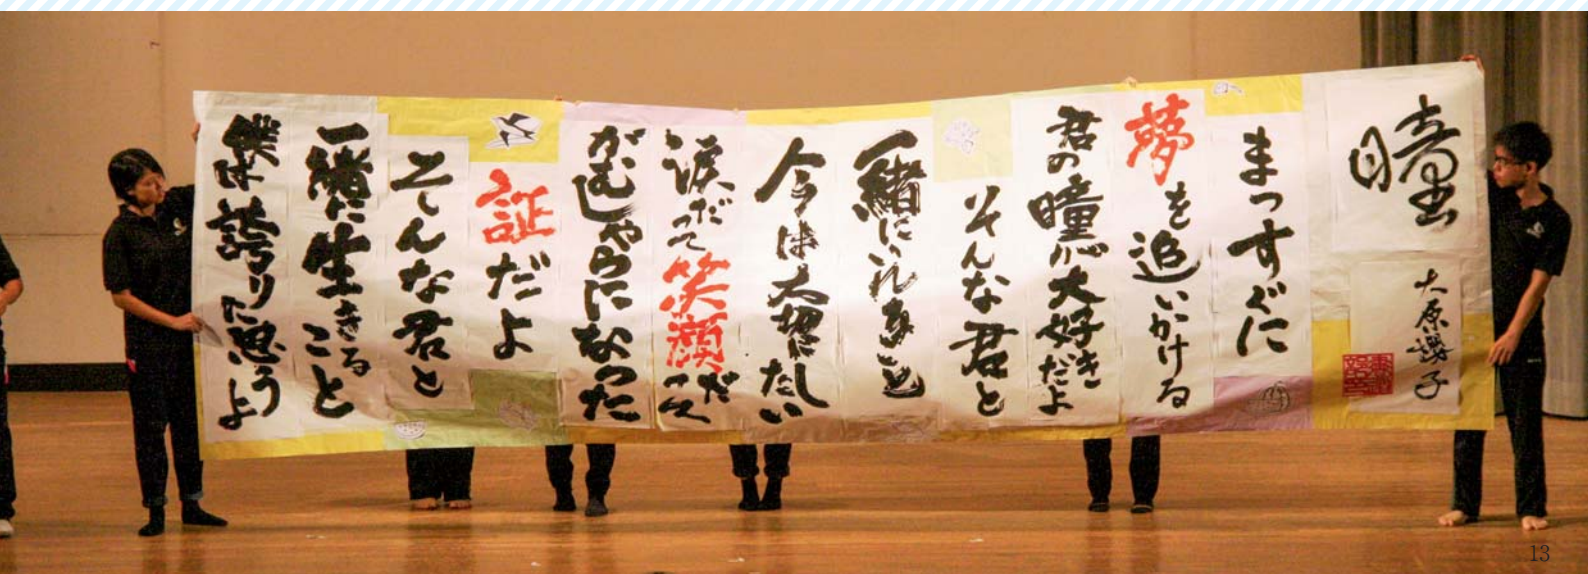 瞳
大原櫻子
まっすぐに
夢を追いかける
君の瞳が大好きだよ
そんな君と
一緒にいれること
今は大切にしたい
涙だって笑顔だって
がむしゃらになった
証だよ
そんな君と
一緒に生きること
僕は誇りに思うよ
13